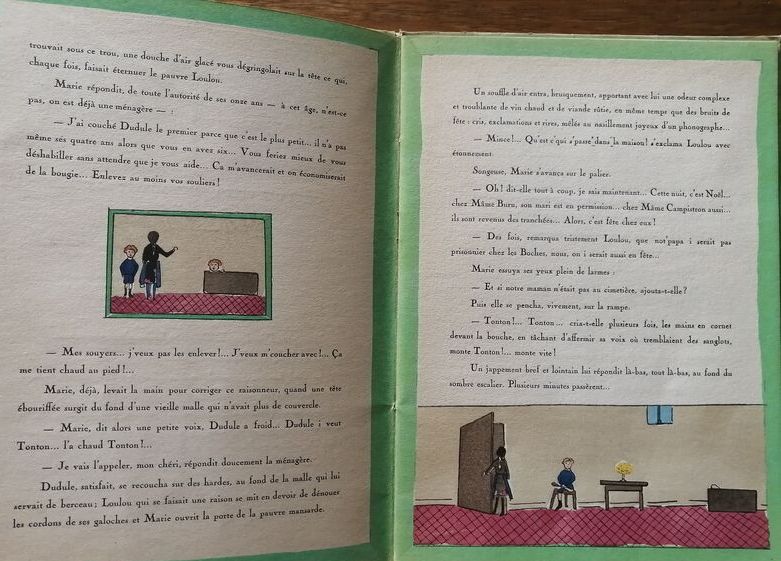 trouvait sous ce trou, une douche d'air glacé vous dégringolait sur la tête ce qui,
chaque fois, faisait éternuer le pauvre Loulou.
Marie répondit, de toute l'autorité de ses onze ans — à cet âge, n'est-ce
pas, on est déjà une ménagère — :
— J'ai couché Dudule le premier parce que c'est le plus petit... il n'a pas
même ses quatre ans alors que vous en avez six... Vous feriez mieux de vous
déshabiller sans attendre que je vous aide... Ca m'avancerait et on économiserait
de la bougie... Enlevez au moins vos souliers !
— Mes souyers... j'veux pas les enlever !... J'veux m'coucher avec !... Ça
me tient chaud au pied !...
Marie, déjà, levait la main pour corriger ce raisonneur, quand une tête
ébouriffée surgit du fond d'une vieille malle qui n'avait plus de couvercle.
— Marie, dit alors une petite voix, Dudule a froid... Dudule i veut
Tonton... l'a chaud Tonton !...
— Je vais l'appeler, mon chéri, répondit doucement la ménagère.
Dudule, satisfait, se recoucha sur des hardes, au fond de la malle qui lui
servait de berceau ; Loulou qui se faisait une raison se mit en devoir de dénouer
les cordons de ses galoches et Marie ouvrit la porte de la pauvre mansarde.
Un souffle d'air entra, brusquement, apportant avec lui une odeur complexe
et troublante de vin chaud et de viande rôtie, en même temps que des bruits de
fête : cris, exclamations et rires, mêlés au nasillement joyeux d'un phonographe...
— Mince !... Qu'est c'qui s'passe dans la maison ! s'exclama Loulou avec
étonnement.
Songeuse, Marie s'avança sur le palier.
— Oh ! dit-elle tout à coup, je sais maintenant... Cette nuit, c'est Noël...
chez Mâme Buru, son mari est en permission... chez Mâme Campistron aussi...
ils sont revenus des tranchées... Alors, c'est fête chez eux !
— Des fois, remarqua tristement Loulou, que not'papa i serait pas
prisonnier chez les Boches, nous, on i serait aussi en fête...
Marie essuya ses yeux plein de larmes :
— Et si notre maman n'était pas au cimetière, ajouta-t-elle ?
Puis elle se pencha, vivement, sur la rampe.
— Tonton !... Tonton... cria-t-elle plusieurs fois, les mains en cornet
devant la bouche, en tâchant d'affermir sa voix où tremblaient des sanglots,
monte Tonton !... monte vite !
Un jappement bref et lointain lui répondit là-bas, tout là-bas, au fond du
sombre escalier. Plusieurs minutes passèrent...